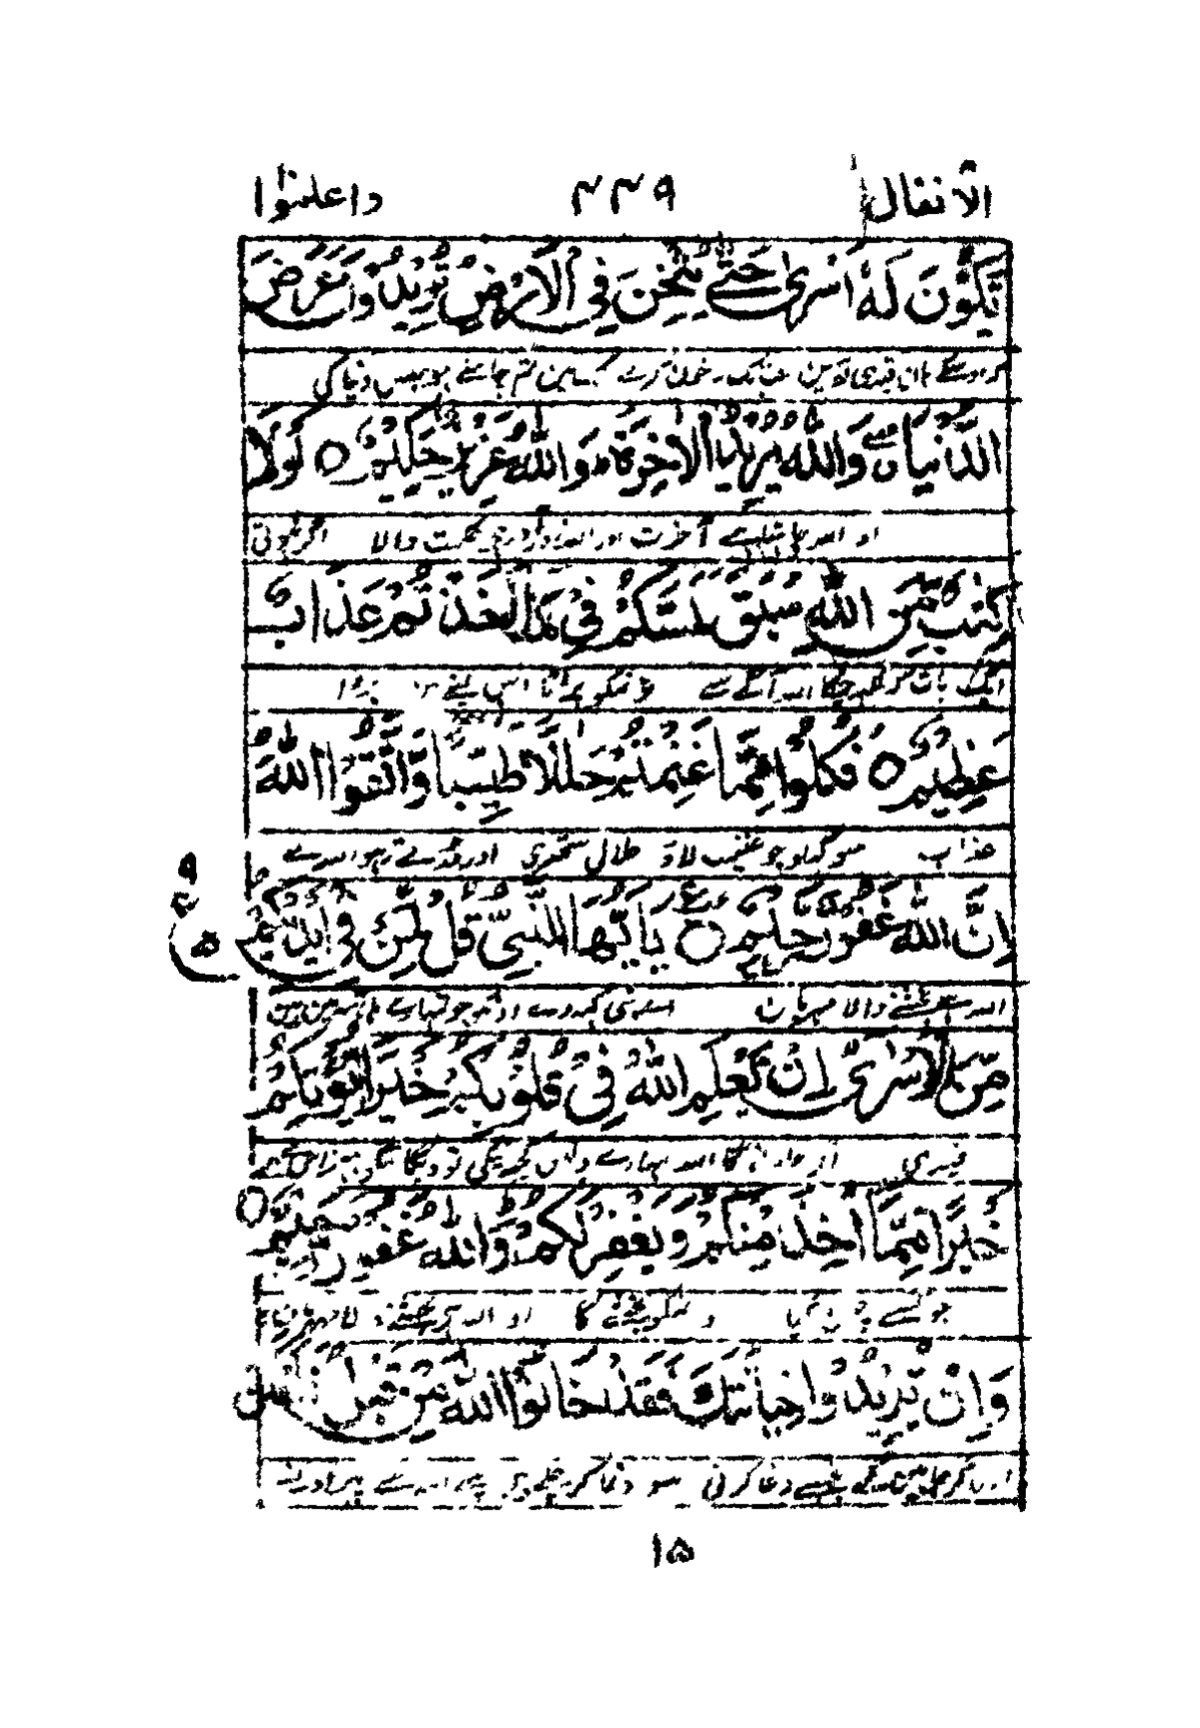 الانفال ۲۴۹ واعلموا
يَّكُوْنَ لَهٗۤ اَسْرٰى حَتّٰى يُثْخِنَ فِي الْاَرْضِ تُرِيْدُوْنَ عَرَضَ
الدُّنْيَا وَاللّٰهُ يُرِيْدُ الْاٰخِرَةَ وَاللّٰهُ عَزِيْزٌ حَكِيْمٌ ○ لَوْلَا
اور اللہ چاہتا ہے آخرت اور اللہ زورآور ہے حکمت والا اگر نہ ہوتی
كِتٰبٌ مِّنَ اللّٰهِ سَبَقَ لَمَسَّكُمْ فِيْمَاۤ اَخَذْتُمْ عَذَابٌ
ایک بات کہ لکھ چکا اللہ آگے سے تو تمکو پڑتا اس لینے میں بڑا
عَظِيْمٌ ○ فَكُلُوْا مِمَّا غَنِمْتُمْ حَلٰلًا طَيِّبًا وَّاتَّقُوا اللّٰهَ
عذاب سو کھاو جو غنیمت لاؤ حلال ستھری اور ڈرتے رہو اللہ سے
اِنَّ اللّٰهَ غَفُوْرٌ رَّحِيْمٌ ○ يٰۤاَيُّهَا النَّبِيُّ قُلْ لِّمَنْ فِيْۤ اَيْدِيْكُمْ
اللہ ہے بخشنے والا مہربان اے نبی کہدے انکو جو تمہارے ہاتھ میں ہیں
مِّنَ الْاَسْرٰٓى اِنْ يَّعْلَمِ اللّٰهُ فِيْ قُلُوْبِكُمْ خَيْرًا يُّؤْتِكُمْ
قیدی اگر جانے گا اللہ تمہارے دل میں کچھ نیکی تو دیگا تمکو بہتر اس سے
خَيْرًا مِّمَّاۤ اُخِذَ مِنْكُمْ وَيَغْفِرْ لَكُمْ وَاللّٰهُ غَفُوْرٌ رَّحِيْمٌ ○
جو تمسے چھن گیا و تمکو بخشے گا اور اللہ ہے بخشنے والا مہربان
وَاِنْ يُّرِيْدُوْا خِيَانَتَكَ فَقَدْ خَانُوا اللّٰهَ مِنْ قَبْلُ
اور اگر چاہینگے تجھسے دغا کرنی سو دغا کر چکے ہیں پہلے اللہ سے
۱۵